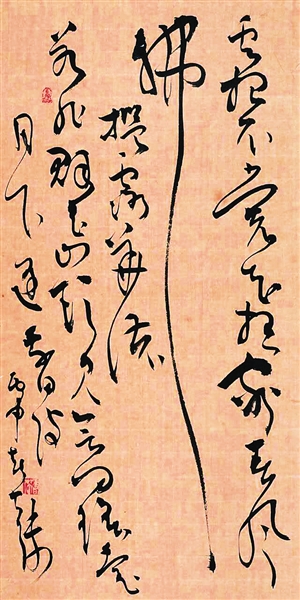 云想衣裳花想容春风
拂
槛露华浓
若非群玉山头见会向瑶台
月下逢 李白诗 丙申